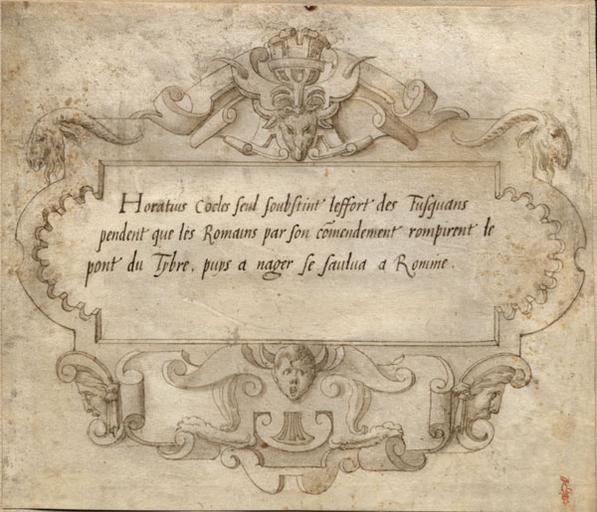 Horatius Cocles seul soubstint leffort des Tusquans
pendent que les Romains par son cōmendement rompirent le
pont du Tybre, puys a nager se saulua a Romme.